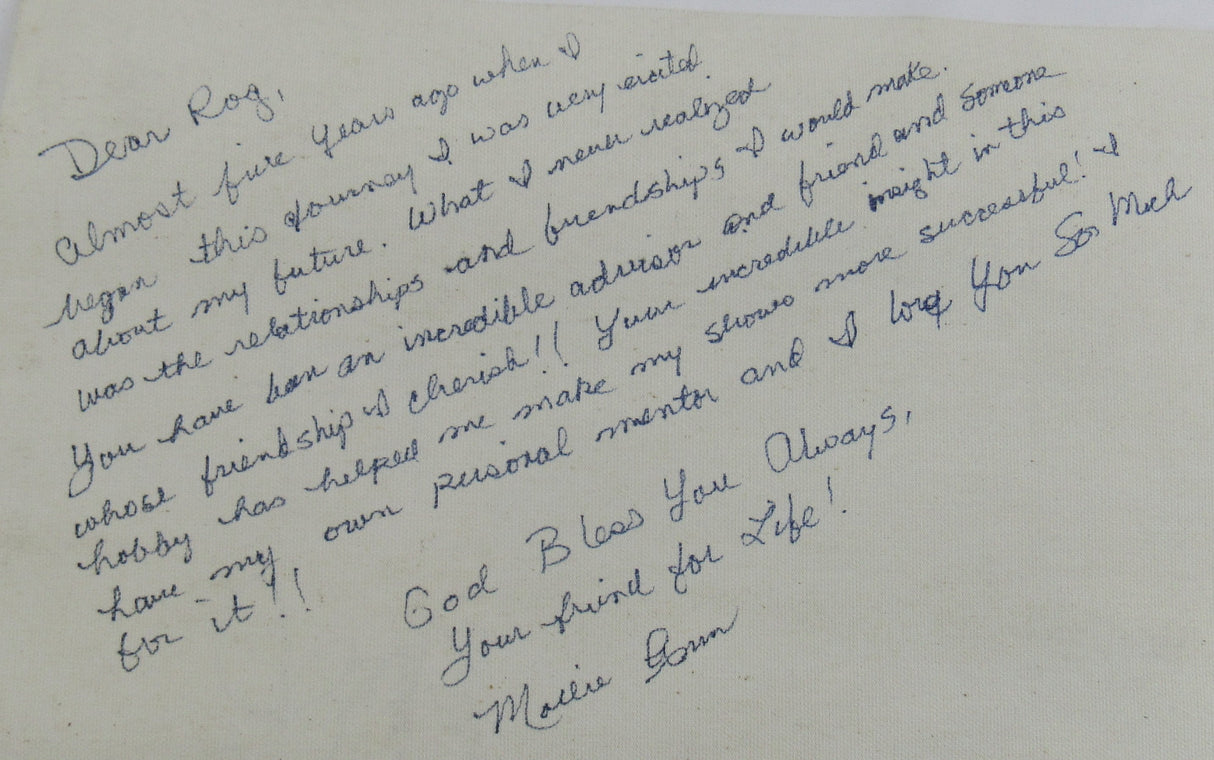 Dear Rog,
Almost five years ago when I
began this Journey I was very excited
about my future. What I never realized
was the relationships and friendships I would make.
You have been an incredible advisor and friend and someone
whose friendship I cherish!! Your incredible insight in this
hobby has helped me make my shows more successful! I
have my own personal mentor and I love You So Much
for it!!
God Bless You Always,
Your friend for Life!
Mollie